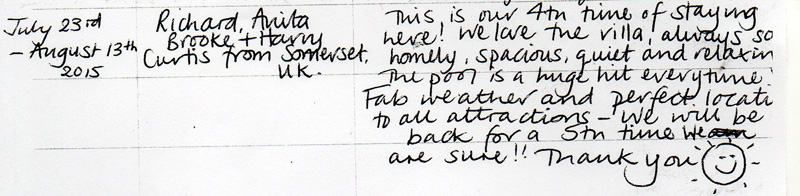 July 23rd
- August 13th
2015
Richard, Anita
Brooke + Harry
Curtis from Somerset,
UK.
This is our 4th time of staying
here! We love the villa, always so
homely, spacious, quiet and relaxin
The pool is a huge hit everytime.
Fab weather and perfect locati
to all attractions - we will be
back for a 5th time we
are sure!! Thank you